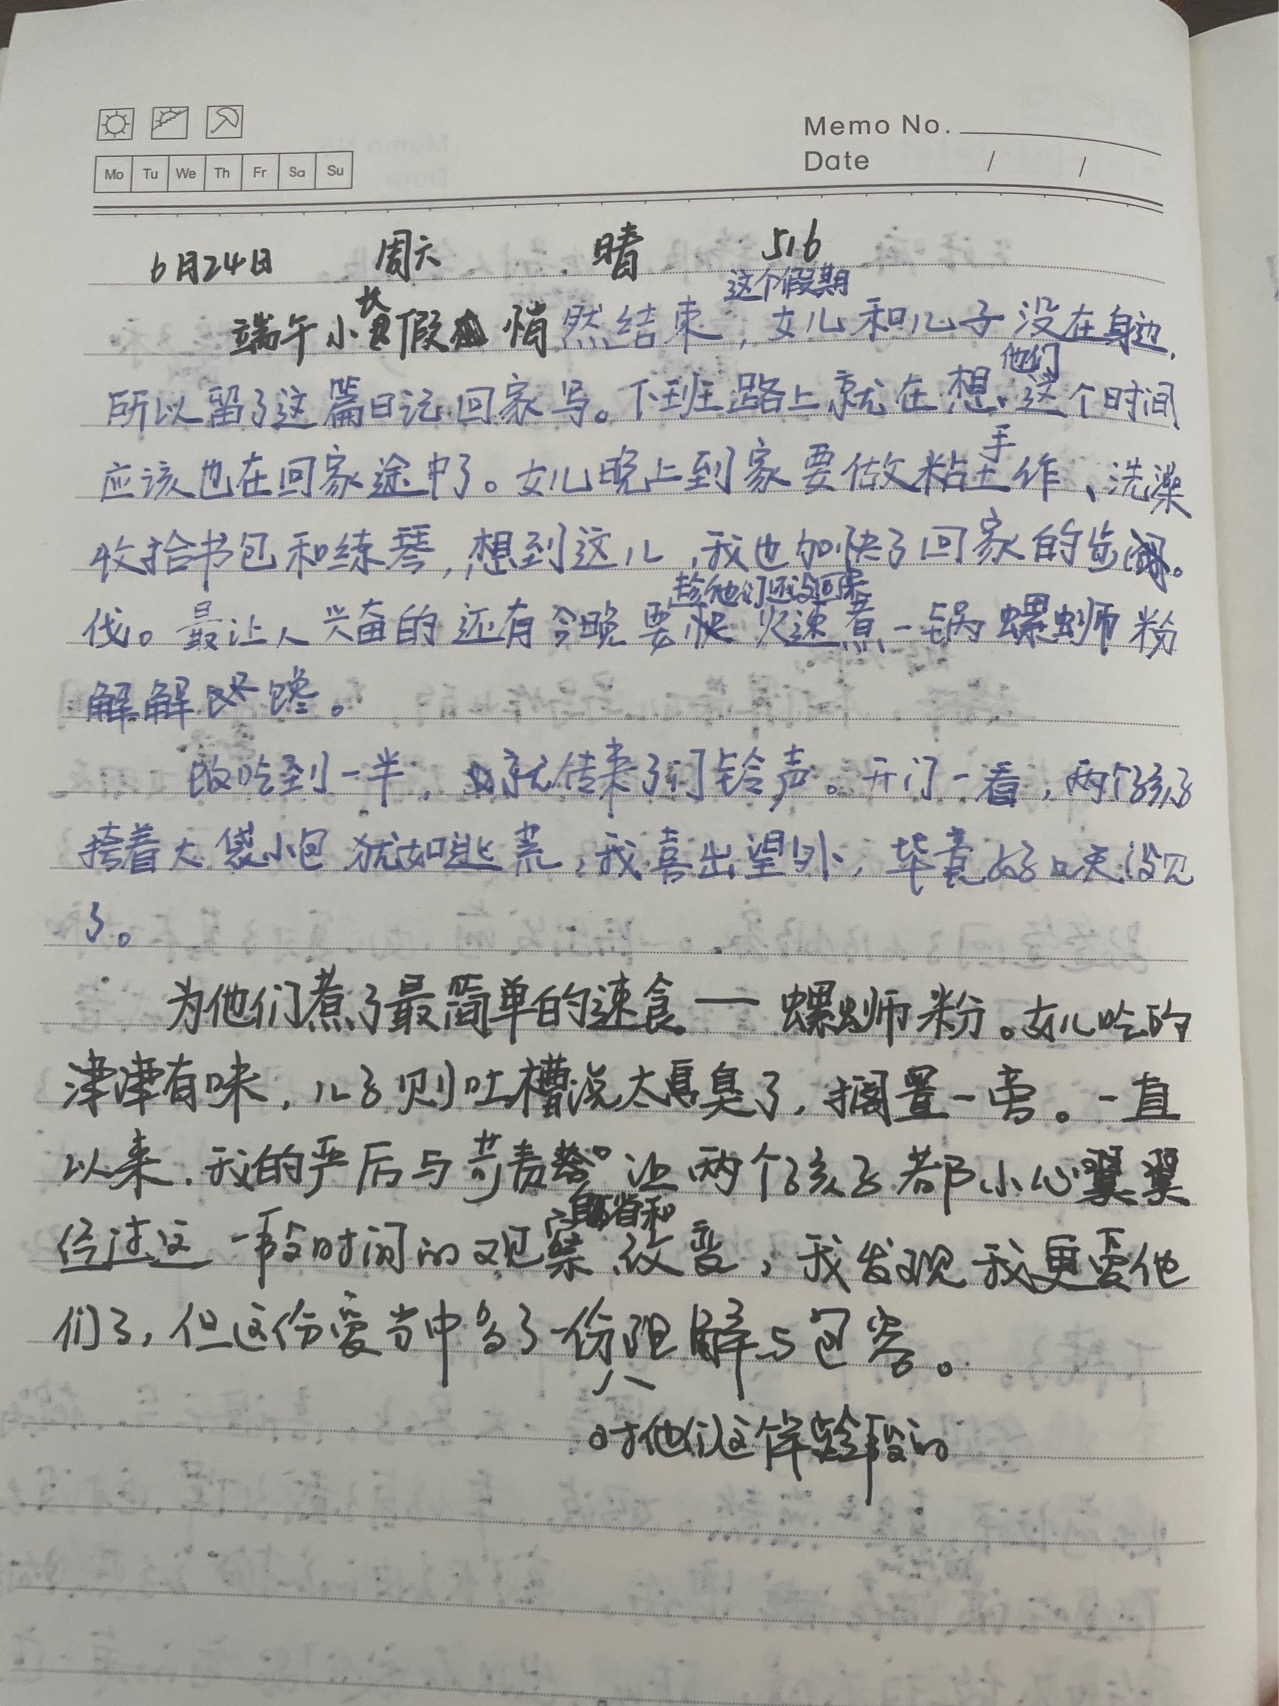 Memo No.
Date / /
Mo Tu We Th Fr Sa Su
6月24日 周六 晴 516
这个假期
端午小长假悄然结束,女儿和儿子没在身边,
他们
所以留了这篇日记回家写。下班路上就在想、这个时间
手
应该也在回家途中了。女儿晚上到家要做粘土作、洗澡
收拾书包和练琴,想到这儿,我也加快了回家的步
趁他们还没回来
伐。最让人兴奋的还有今晚要快火速煮一锅螺蛳粉
解解馋。
吃到一半,就传来了门铃声。开门一看,两个孩子
挎着大袋小包犹如逃荒,我喜出望外,毕竟好几天没见
了。
为他们煮了最简单的速食——螺蛳粉。女儿吃的
津津有味,儿子则吐槽说太臭了,搁置一旁。一直
以来,我的严厉与苛责让两个孩子都小心翼翼
自省和
经过这一段时间的观察改变,我发现我更爱他
们了,但这份爱当中多了一份理解与包容。
对他们这个年龄段的